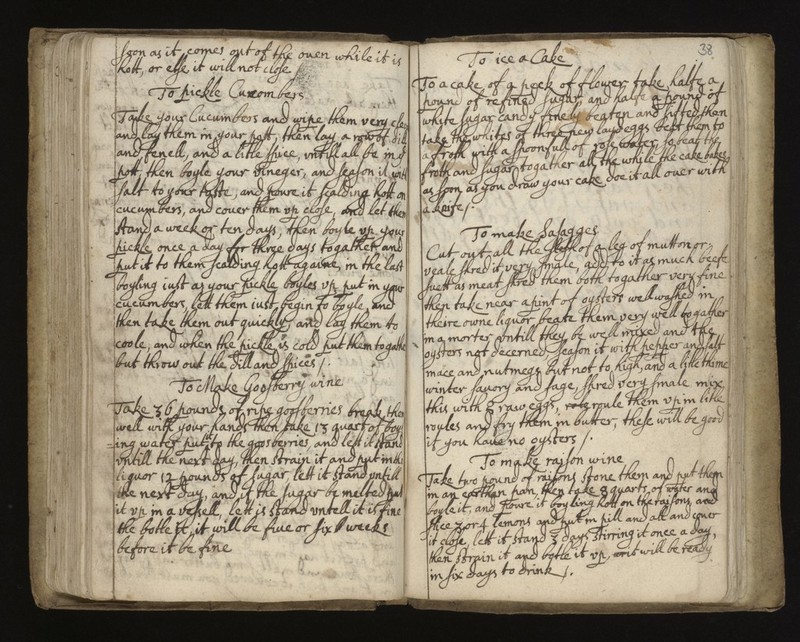 soon as it comes out of the oven while it is
hott, or else it will not close
To pickle Cucombers
Take your Cucumbers and wipe them very clea
and lay them in your pott, then lay a row of dill
and fenell, and a litle spice, untill all be in yr
pott, then boyle your vineger, and season it with
salt to your taste, and poure it scalding hott on
cucumbers, and couer them vp close, and let them
stand a week or ten days, then boyle vp your
pickle once a day for three days togather and
put it to them scalding hott againe, in the last
boyling iust as your pickle boyles vp put in your
cucumbers, lett them iust begin to boyle, and
then take them out quickly and lay them to
coole, and when the pickle is cold put them togathe
but throw out the dill and spices /.
To Make Goosberry wine
Take 36 pounds of ripe goosberries break them
well with your hands then take 13 quart of boy
=ing water put to the goosberries, and lett it stand
vntill the next day, then strain it and put in the
liquor 12 pounds of sugar lett it stand vntill
the next day, and if the sugar be melted put
it vp in a vessell, lett is stand vntell it is fine
the botle it, it will be fiue or six weeks
before it be fine
38
To ice a Cake
To a cake of a peck of flower take halfe a
pound of refined sugar, and halfe a pound of
white sugar candy finely beaten and sifted then
take the whites of three new layd eggs beat them to
a froth with a spoonfull of rose water, so beat the
froth and sugar together all the while the cake bakes
as soon as you draw your cake doe it all ouer with
a knife /.
To make Sasages
Cut out all the flesh of a leg of mutton or
veale shred it very smale, add to it as much beefe
suett as meat shred them both togather very fine
then take near a pint of oysters well washed in
theire owne liquor beate them very well togather
in a morter untill they be well mixed and the
oysters not decerned, season it with pepper and salt
mace and nutmegs but not to high, and a litle thime
winter savory and sage, shred very smale mix
this with 8 raw eggs, roule them vp in litle
roules and fry them in butter, these will be good
if you haue no oysters /.
To make raison wine
Take two pound of raisons stone them and put them
in an earthen pan then take 8 quarts of water and
boyle it, and poure it boyling hott on the raisons and
slice 3 or 4 lemons and put in pill and all and couer
it close, lett it stand 3 days stirring it once a day,
then strain it and botle it vp, it will be ready
in six days to drink /.